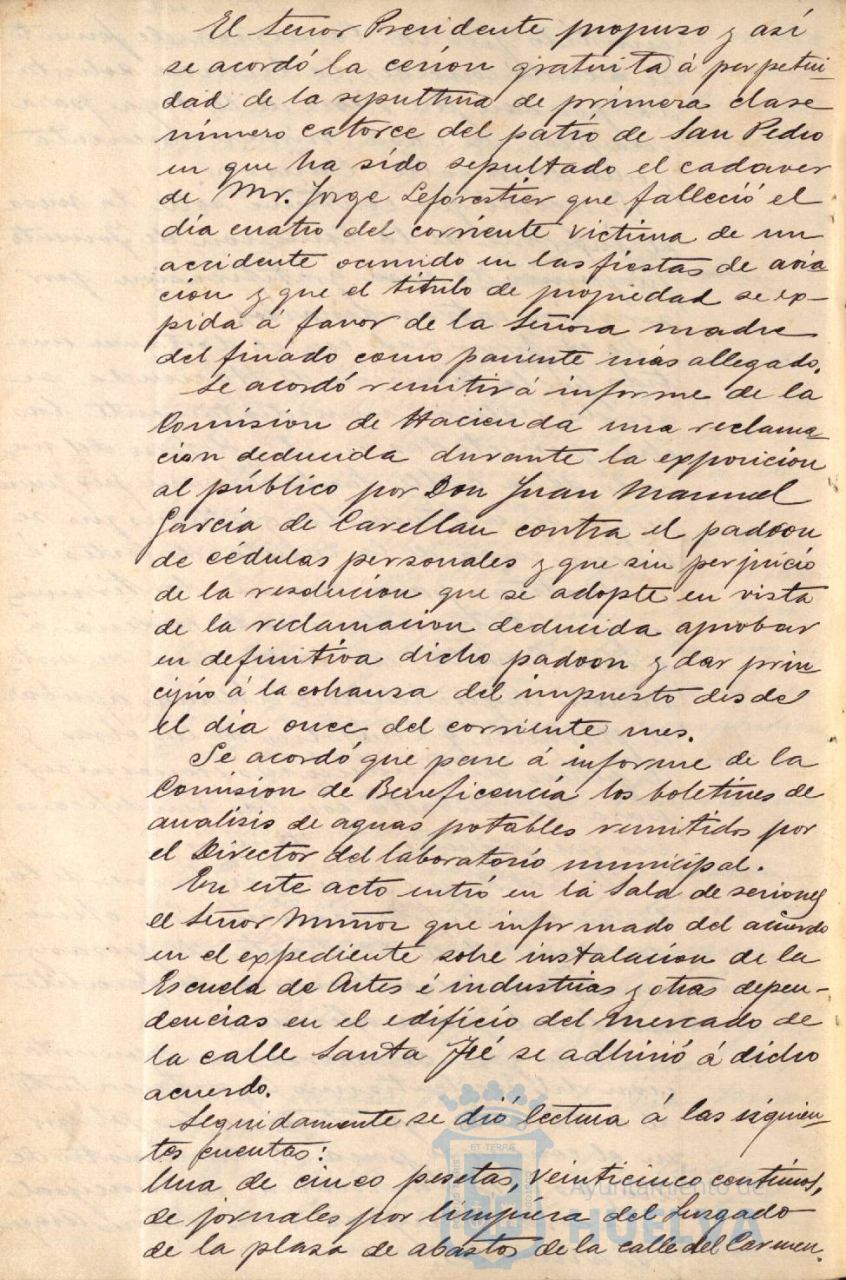 El Señor Presidente propuso y así
se acordó la cesion gratuita á perpetui-
dad de la sepultura de primera clase
número catorce del patio de San Pedro
en que ha sido sepultado el cadaver
de Mr. Jorge Leforestier que falleció el
dia cuatro del corriente victima de un
accidente ocurrido en las fiestas de avia-
cion y que el título de propiedad se ex-
pida á favor de la Señora madre
del finado como pariente más allegado.
Se acordó remitir á informe de la
Comision de Hacienda una reclama-
cion deducida durante la exposicion
al público por Don Juan Manuel
García de Carellan contra el padron
de cédulas personales y que sin perjuicio
de la resolucion que se adopte en vista
de la reclamacion deducida aprobar
en definitiva dicho padron y dar prin-
cipio á la cobranza del impuesto desde
el dia once del corriente mes.
Se acordó que pase á informe de la
Comision de Beneficencia los boletines de
analisis de aguas potables remitidos por
el Director del laboratorio municipal.
En este acto entró en la Sala de sesiones
el Señor Muñoz que informado del acuerdo
en el expediente sobre instalacion de la
Escuela de Artes é industrias y otras depen-
dencias en el edificio del mercado de
la calle Santa Fé se adhirió á dicho
acuerdo.
Seguidamente se dió lectura á las siguien-
tes cuentas:
Una de cinco pesetas, veinticinco centimos,
de jornales por limpiera del Juzgado
de la plaza de abastos de la calle del Carmen.
Ayuntamiento de
HUELVA